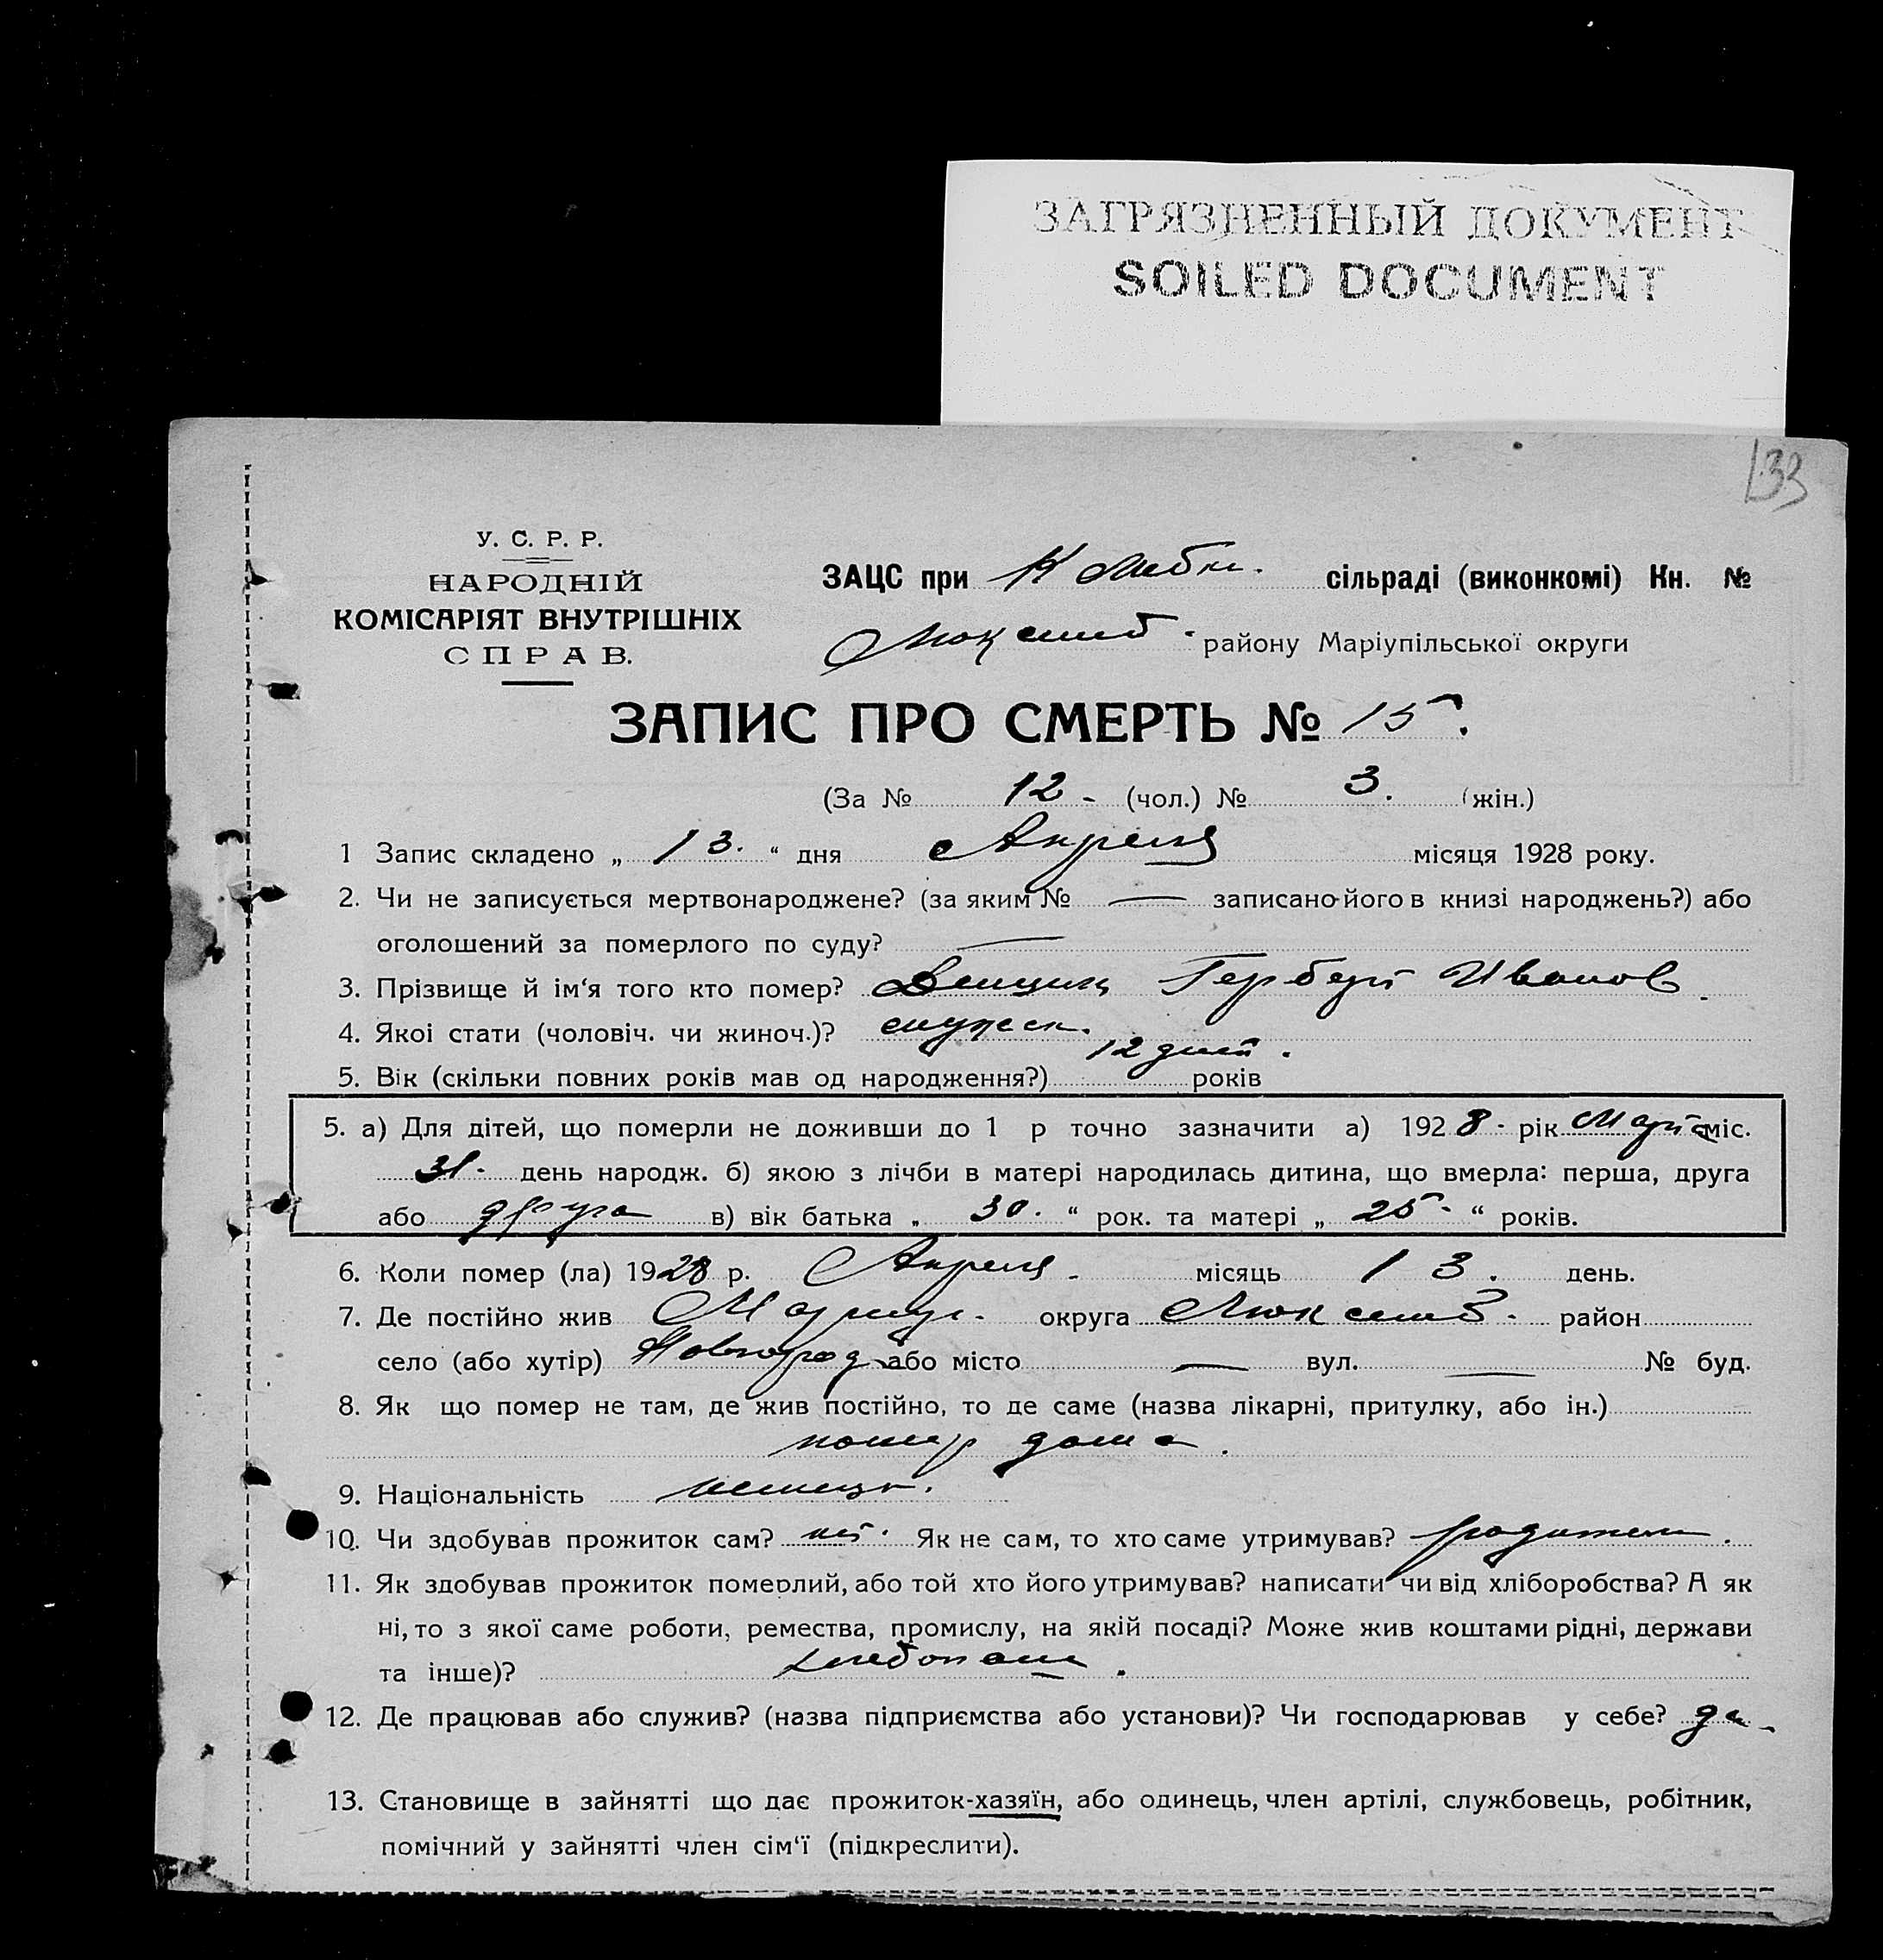 ЗАГРЯЗНЕННЫЙ ДОКУМЕНТ
SOILED DOCUMENT
133
У. С. Р. Р.
НАРОДНІЙ
КОМІСАРІЯТ ВНУТРІШНІХ
СПРАВ.
ЗАЦС при сільраді (виконкомі) Кн. №
Люксемб. району Маріупільської округи
ЗАПИС ПРО СМЕРТЬ № 15.
(За № 12 - (чол.) № 3. (жін.)
1 Запис складено „ 13. “ дня Апреля місяця 1928 року.
2. Чи не записується мертвонароджене? (за яким № — записано його в книзі народжень?) або
оголошений за померлого по суду? —
3. Прізвище й ім‘я того кто помер? Герберт Иванов.
4. Якоі стати (чоловіч. чи жиноч.)? мужеск.
5. Вік (скільки повних років мав од народження?) 12 дней. років
5. а) Для дітей, що померли не доживши до 1 р точно зазначити а) 1928 - рік Марта міс.
31 - день народж. б) якою з лічби в матері народилась дитина, що вмерла: перша, друга
або друга в) вік батька „ 30. “ рок. та матері „ 25 - “ років.
6. Коли помер (ла) 1928 р. Апреля - місяць 13. день.
7. Де постійно жив Мариуп. округа Люксемб. район
село (або хутір) Новоград. або місто — вул. — № буд.
8. Як що помер не там, де жив постійно, то де саме (назва лікарні, притулку, або ін.)
помер дома.
9. Національність немецк.
10. Чи здобував прожиток сам? нет. Як не сам, то хто саме утримував? родители.
11. Як здобував прожиток померлий, або той хто його утримував? написати чи від хліборобства? А як
ні, то з якої саме роботи, ремества, промислу, на якій посаді? Може жив коштами рідні, держави
та інше)? хлебопаш.
12. Де працював або служив? (назва підприємства або установи)? Чи господарював у себе? да -
13. Становище в зайнятті що дає прожиток-хазяїн, або одинець, член артілі, службовець, робітник,
помічний у зайнятті член сім‘ї (підкреслити).